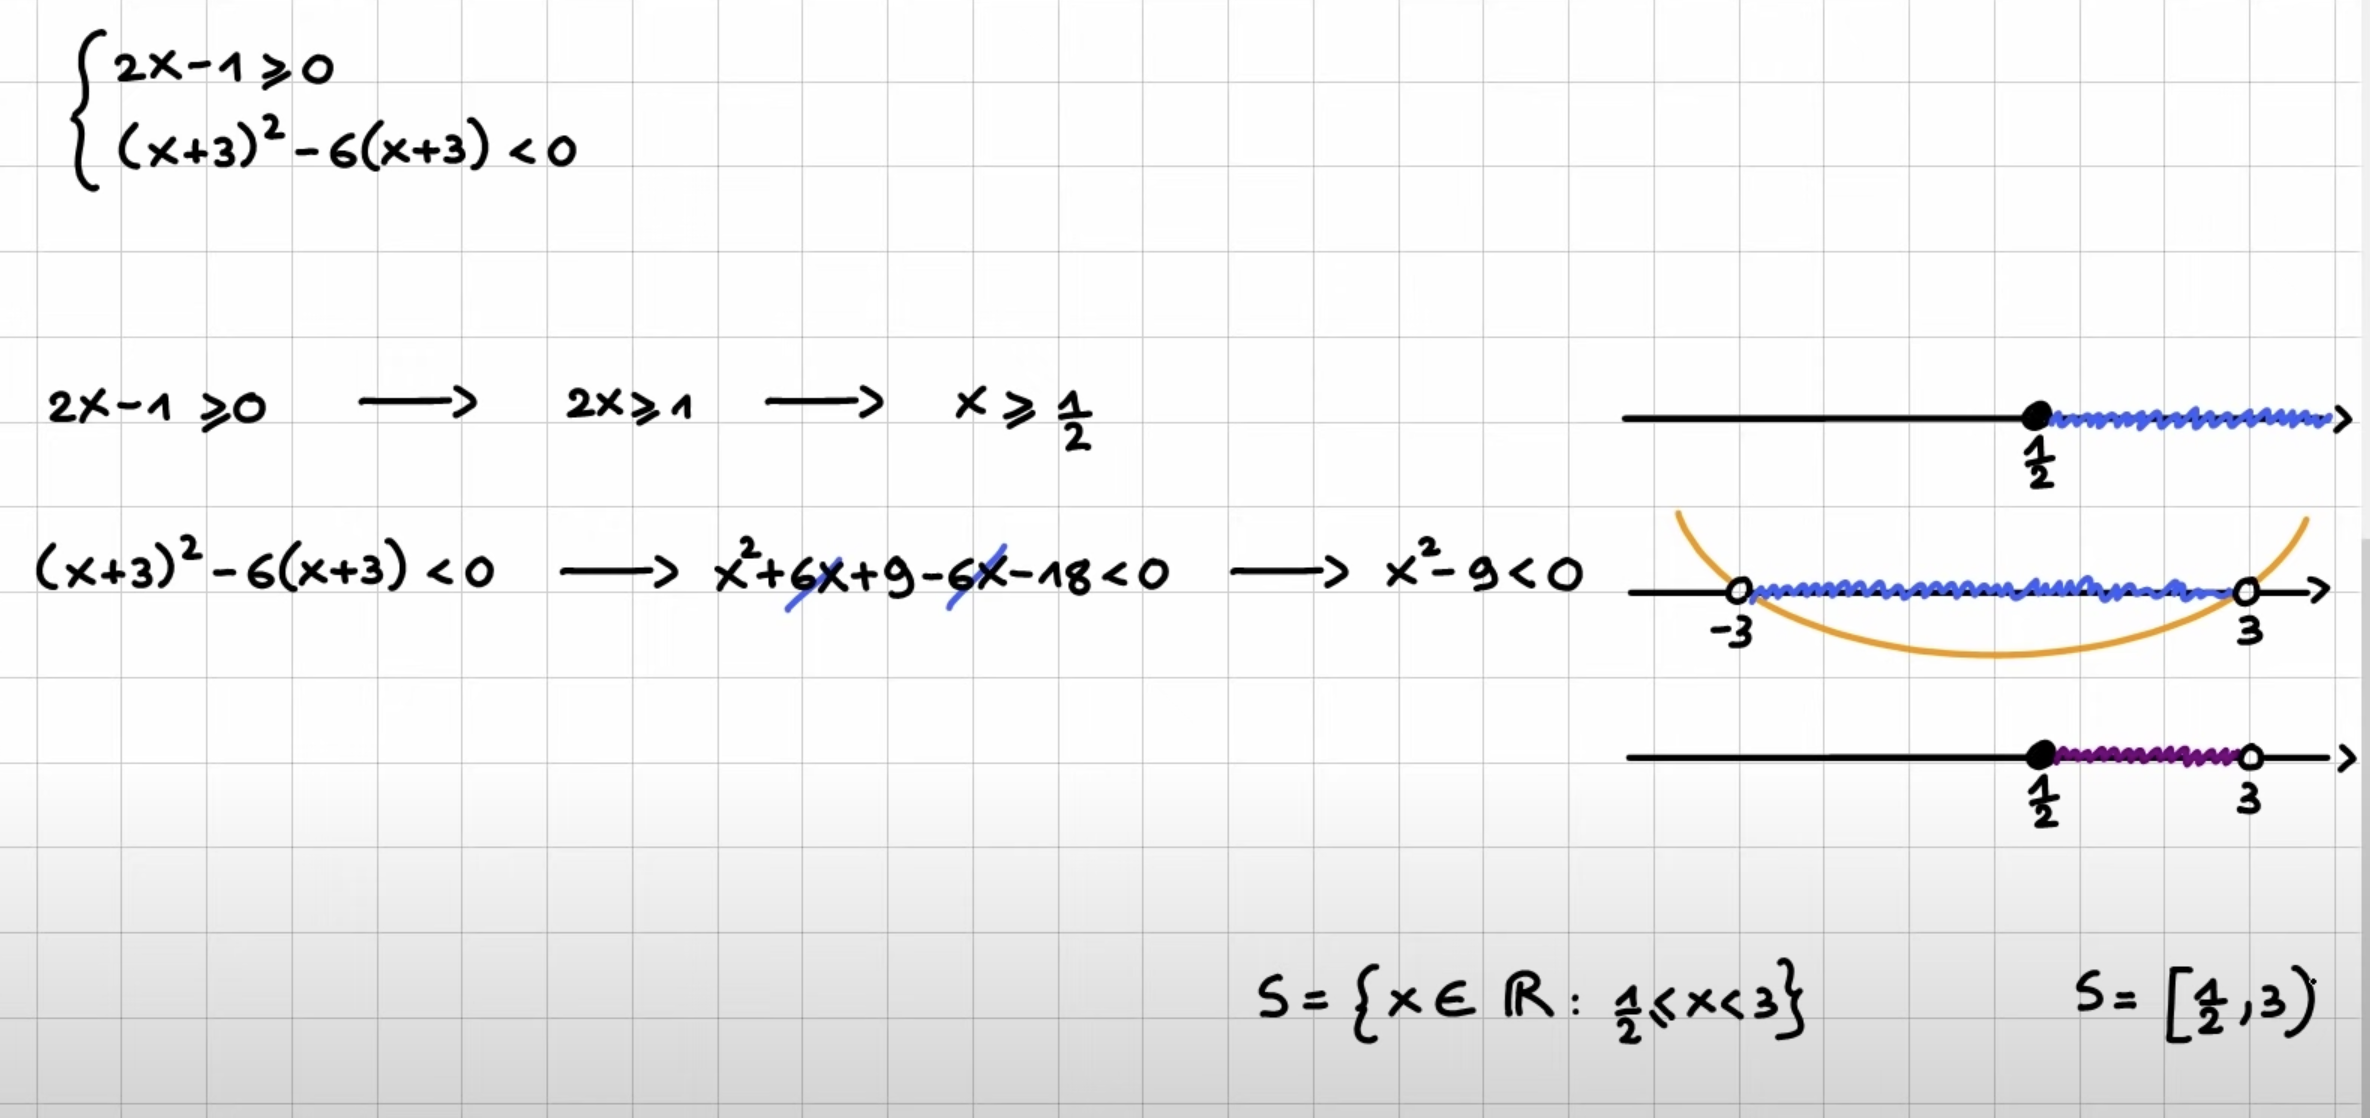 { 2x-1 ⩾ 0
(x+3)² - 6(x+3) < 0
2x-1 ⩾ 0 → 2x ⩾ 1 → x ⩾ 1/2
1/2
(x+3)² - 6(x+3) < 0 → x² + 6x + 9 - 6x - 18 < 0 → x² - 9 < 0
-3 3
1/2 3
S = {x ∈ ℝ : 1/2 ⩽ x < 3} S = [1/2, 3)